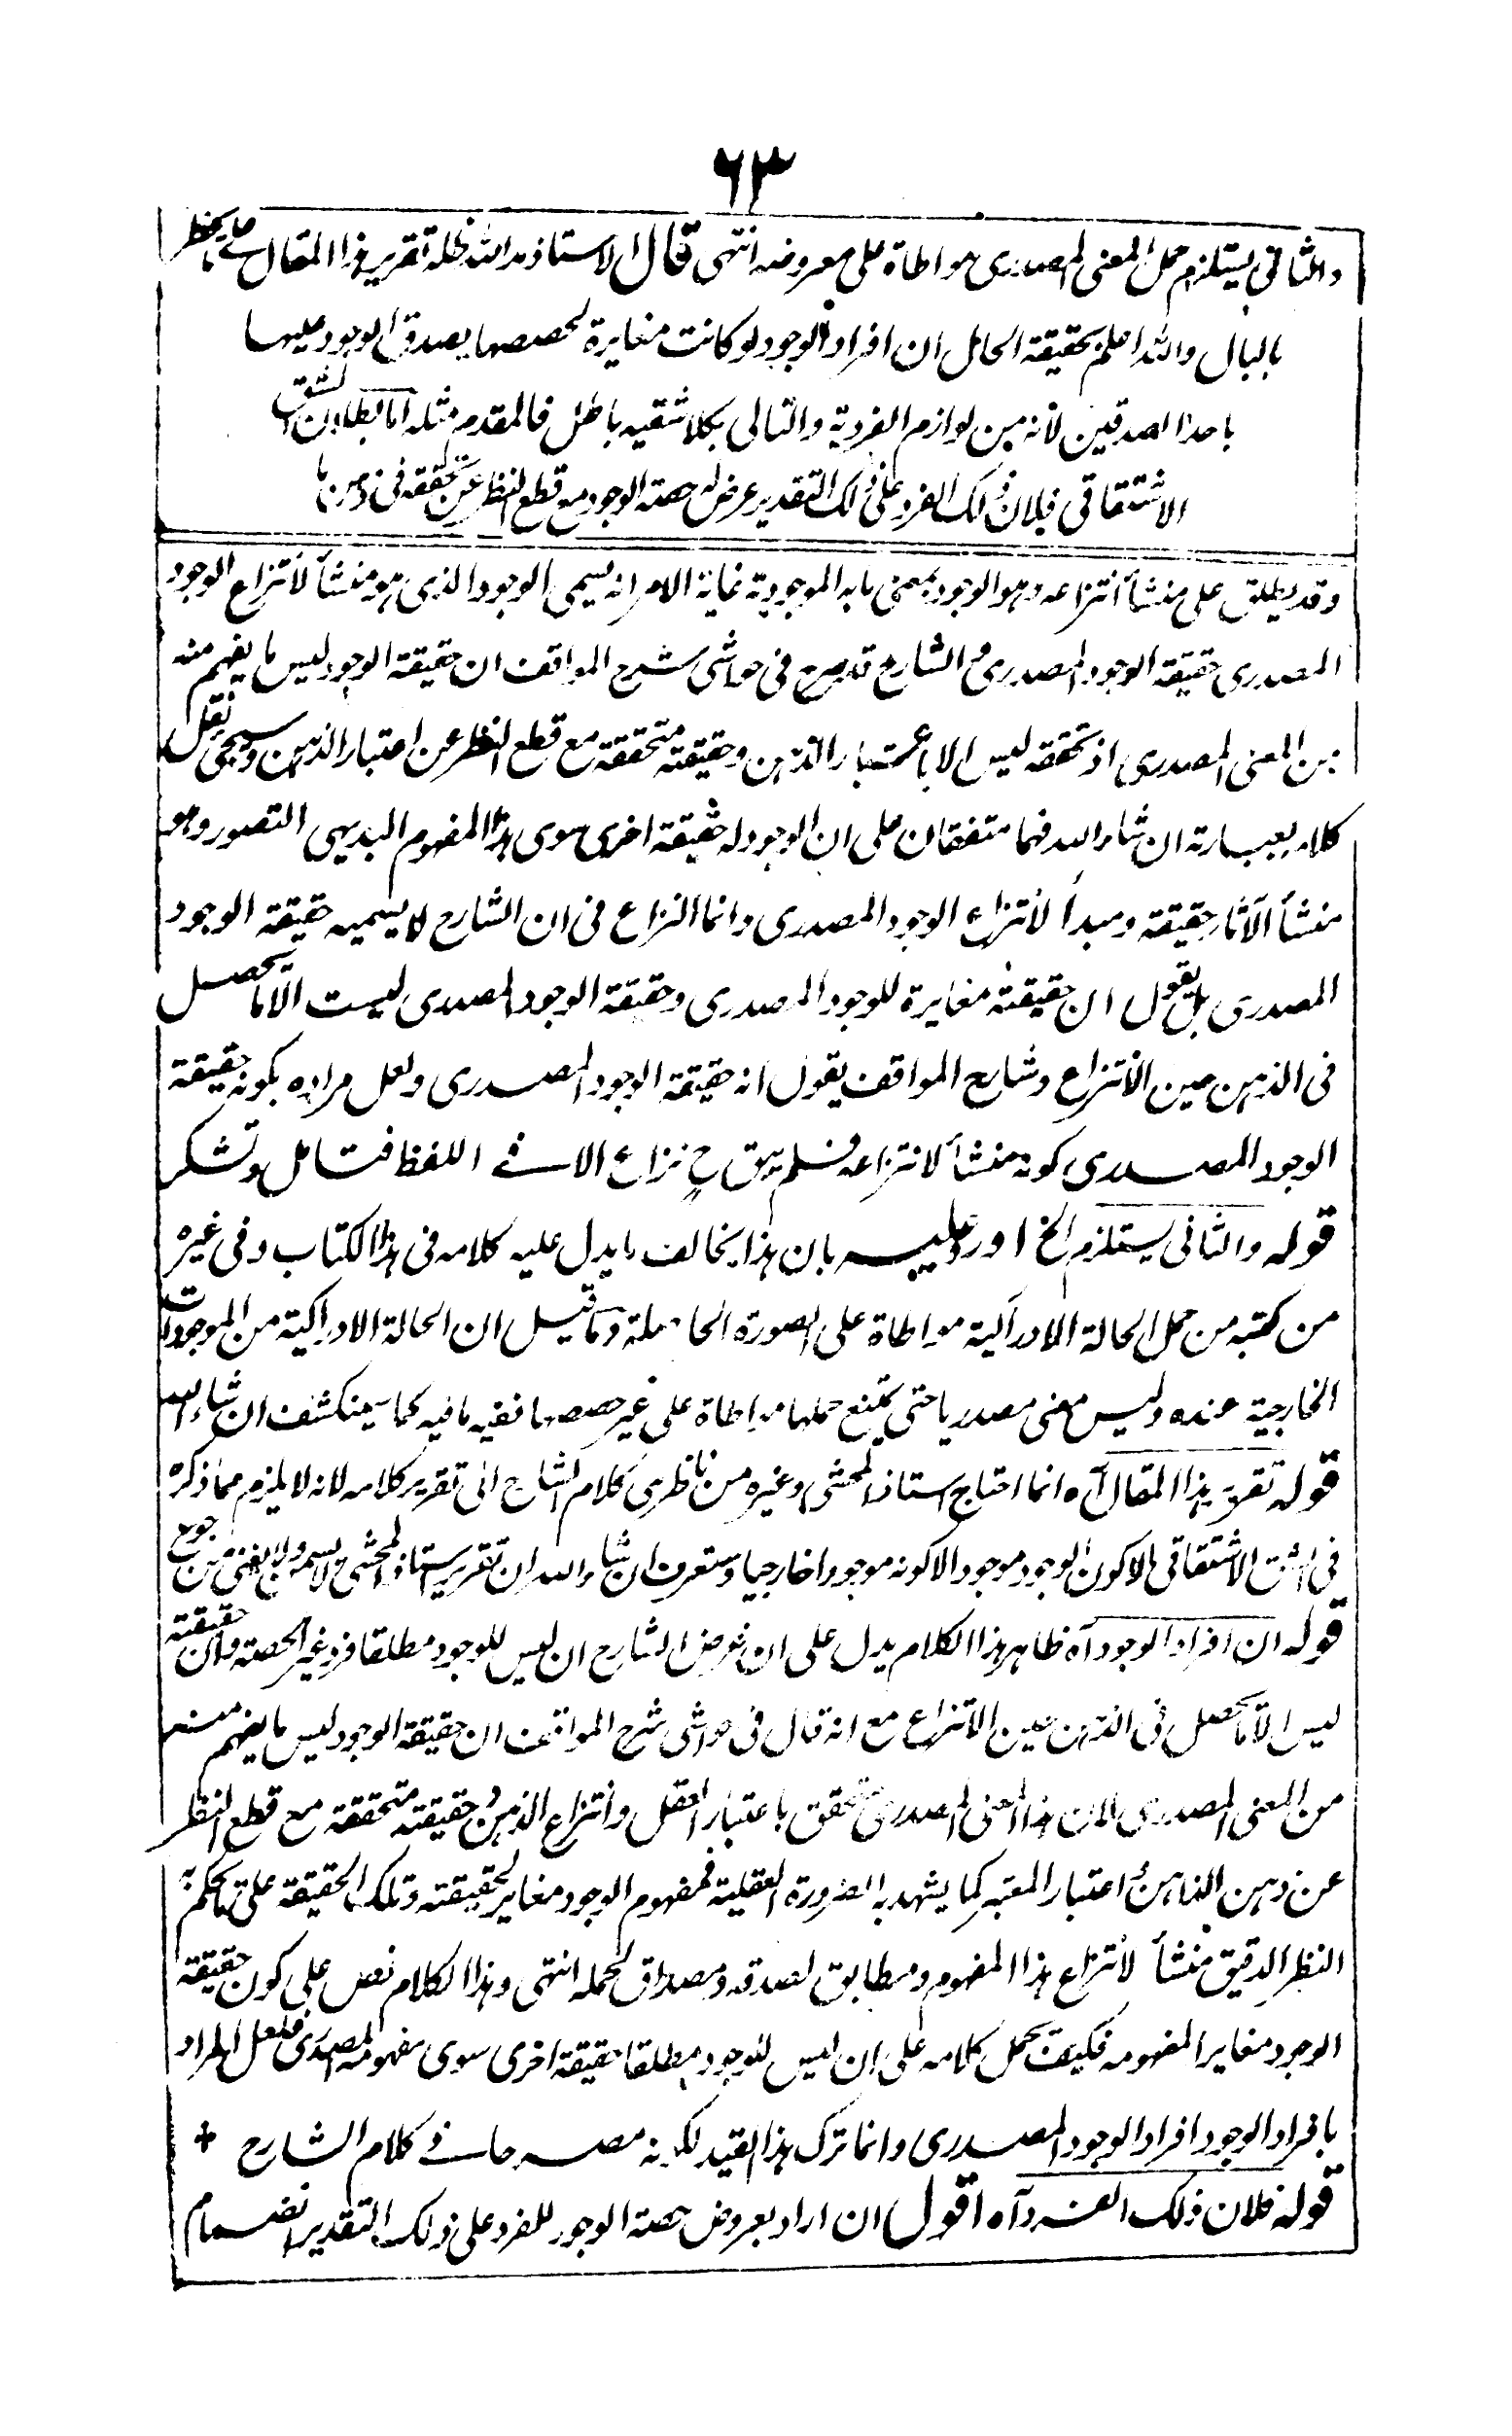 ٦٣
والثاني يستلزم حمل المعنى المصدرى مواطاة على معروضه انتهى قال الاستاذ مد الله ظله تقرير هذا المقال على ما يخطر
بالبال والله اعلم بحقيقة الحال ان افراد الوجود لو كانت مغايرة لحصصها يصدق الوجود عليها
باحد الصدقين لانه من لوازم الفردية والتالى بكلا شقيه باطل فالمقدم مثله اما بطلان الشق
الاشتقاقي فلان ذلك الفرد على ذلك التقدير عرض له حصة الوجود مع قطع النظر عن تحققه في ذهن ما
وقد يطلق على منشأ انتزاعه وهو الوجود بمعنى ما به الموجودية غاية الامر انه يسمى الوجود الذى هو منشأ لانتزاع الوجود
المصدرى حقيقة الوجود المصدرى والشارح قد صرح فى حواشى شرح المواقف ان حقيقة الوجود ليس ما يفهم منه
من المعنى المصدرى اذ تحققه ليس الا باعتبار الذهن وحقيقته متحققة مع قطع النظر عن اعتبار الذهن وسيجئ نقل
كلامه بعبارته ان شاء الله فهما متفقان على ان الوجود له حقيقة اخرى سوى هذا المفهوم البديهى التصور وهو
منشأ الآثار حقيقة ومبدأ لانتزاع الوجود المصدرى وانما النزاع فى ان الشارح لا يسميه حقيقة الوجود
المصدرى بل يقول ان حقيقته مغايرة للوجود المصدرى وحقيقة الوجود المصدرى ليست الا ما يحصل
فى الذهن حين الانتزاع وشارح المواقف يقول انه حقيقة الوجود المصدرى ولعل مراده بكونه حقيقة
الوجود المصدرى كونه منشأ لانتزاعه فلم يبق ح نزاع الا فى اللفظ فتامل وتشكر
قوله والثانى يستلزم الخ اورد عليه بان هذا يخالف ما يدل عليه كلامه فى هذا الكتاب وفى غيره
من كتبه من حمل الحالة الادراكية مواطاة على الصورة الحاصلة وما قيل ان الحالة الادراكية من الموجودات
الخارجية عنده وليس معنى مصدريا حتى يمتنع حملها مواطاة على غير حصصها ففيه ما فيه كما سينكشف ان شاء الله
قوله تقرير هذا المقال آه انما احتاج استاذ المحشى وغيره من ناظرى كلام الشارح الى تقرير كلامه لانه لا يلزم مما ذكره
فى الشق الاشتقاقى الا كون الوجود موجودا لا كونه موجودا خارجيا وستعرف ان شاء الله ان تقرير استاذ المحشى لا يسمن ولا يغنى من جوع
قوله ان افراد الوجود آه ظاهر هذا الكلام يدل على ان غرض الشارح ان ليس للوجود مطلقا فرد غير الحصة وان حقيقته
ليس الا ما يحصل فى الذهن حين الانتزاع مع انه قال فى حواشى شرح المواقف ان حقيقة الوجود ليس ما يفهم منه
من المعنى المصدرى لان هذا المعنى المصدرى تحقق باعتبار العقل وانتزاع الذهن وحقيقته متحققة مع قطع النظر
عن ذهن الذاهن واعتبار المعتبر كما يشهد به الضرورة العقلية فمفهوم الوجود مغاير لحقيقته وتلك الحقيقة على ما يحكم به
النظر الدقيق منشأ لانتزاع هذا المفهوم ومطابق لصدقه ومصداق لحمله انتهى وهذا الكلام نص على كون حقيقة
الوجود مغايرا لمفهومه فكيف يحمل كلامه على ان ليس للوجود مطلقا حقيقة اخرى سوى مفهومه المصدرى فلعل المراد
بافراد الوجود افراد الوجود المصدرى وانما ترك هذا القيد لكونه مصرحا فى كلام الشارح +
قوله فلان ذلك الفرد آه اقول ان اراد بعروض حصة الوجود للفرد على ذلك التقدير انضمام